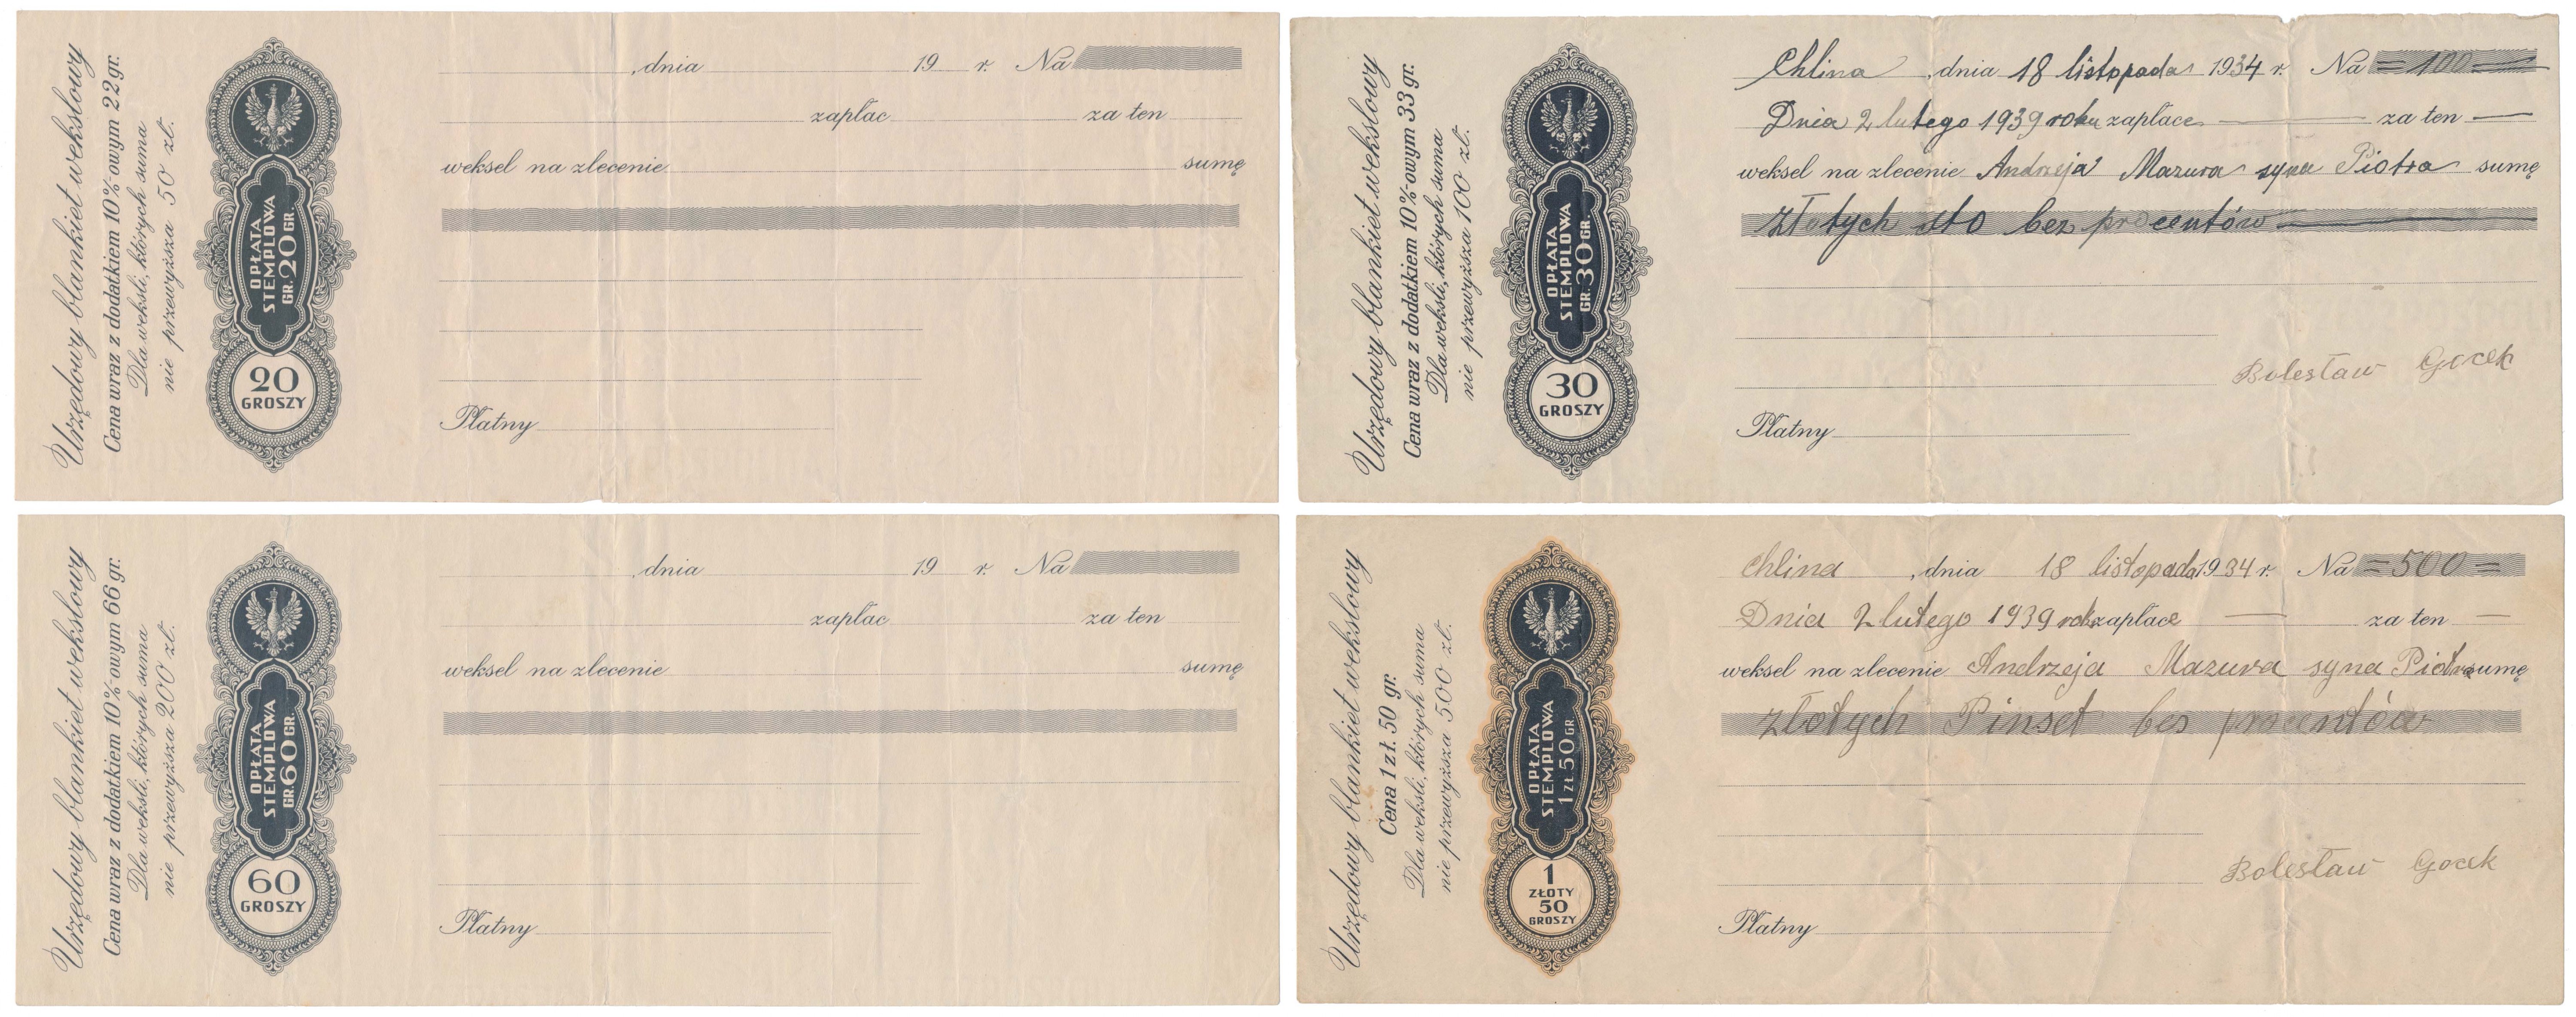 Urzędowy blankiet wekslowy
Cena wraz z dodatkiem 10%-owym 22 gr.
Dla weksli, których suma
nie przewyższa 50 zł.
OPŁATA
STEMPLOWA
GR. 20 GR.
20
GROSZY
, dnia 19 r. Na
zapłac za ten
weksel na zlecenie sumę
Płatny
Urzędowy blankiet wekslowy
Cena wraz z dodatkiem 10%-owym 33 gr.
Dla weksli, których suma
nie przewyższa 100 zł.
OPŁATA
STEMPLOWA
GR. 30 GR.
30
GROSZY
Chlina , dnia 18 listopada 1934 r. Na =100=
Dnia 2 lutego 1939 roku zapłace — za ten —
weksel na zlecenie Andrzeja Mazura syna Piotra sumę
złotych sto bez procentów
Bolesław Gocek
Płatny
Urzędowy blankiet wekslowy
Cena wraz z dodatkiem 10%-owym 66 gr.
Dla weksli, których suma
nie przewyższa 200 zł.
OPŁATA
STEMPLOWA
GR. 60 GR.
60
GROSZY
, dnia 19 r. Na
zapłac za ten
weksel na zlecenie sumę
Płatny
Urzędowy blankiet wekslowy
Cena 1 zł. 50 gr.
Dla weksli, których suma
nie przewyższa 500 zł.
OPŁATA
STEMPLOWA
1 ZŁ 50 GR
1
ZŁOTY
50
GROSZY
Chlina , dnia 18 listopada 1934 r. Na =500=
Dnia 2 lutego 1939 roku zapłace — za ten —
weksel na zlecenie Andrzeja Mazura syna Piotra sumę
złotych Pinset bes procentów
Bolesław Gocek
Płatny